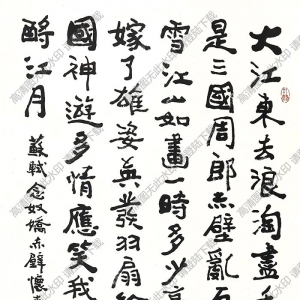 大江東去浪淘盡
是三國周郎赤壁亂石
雪江山如畫一時多少
嫁了雄姿英發羽扇綸
國神遊多情應笑我
酹江月
蘇軾念奴嬌赤壁懷